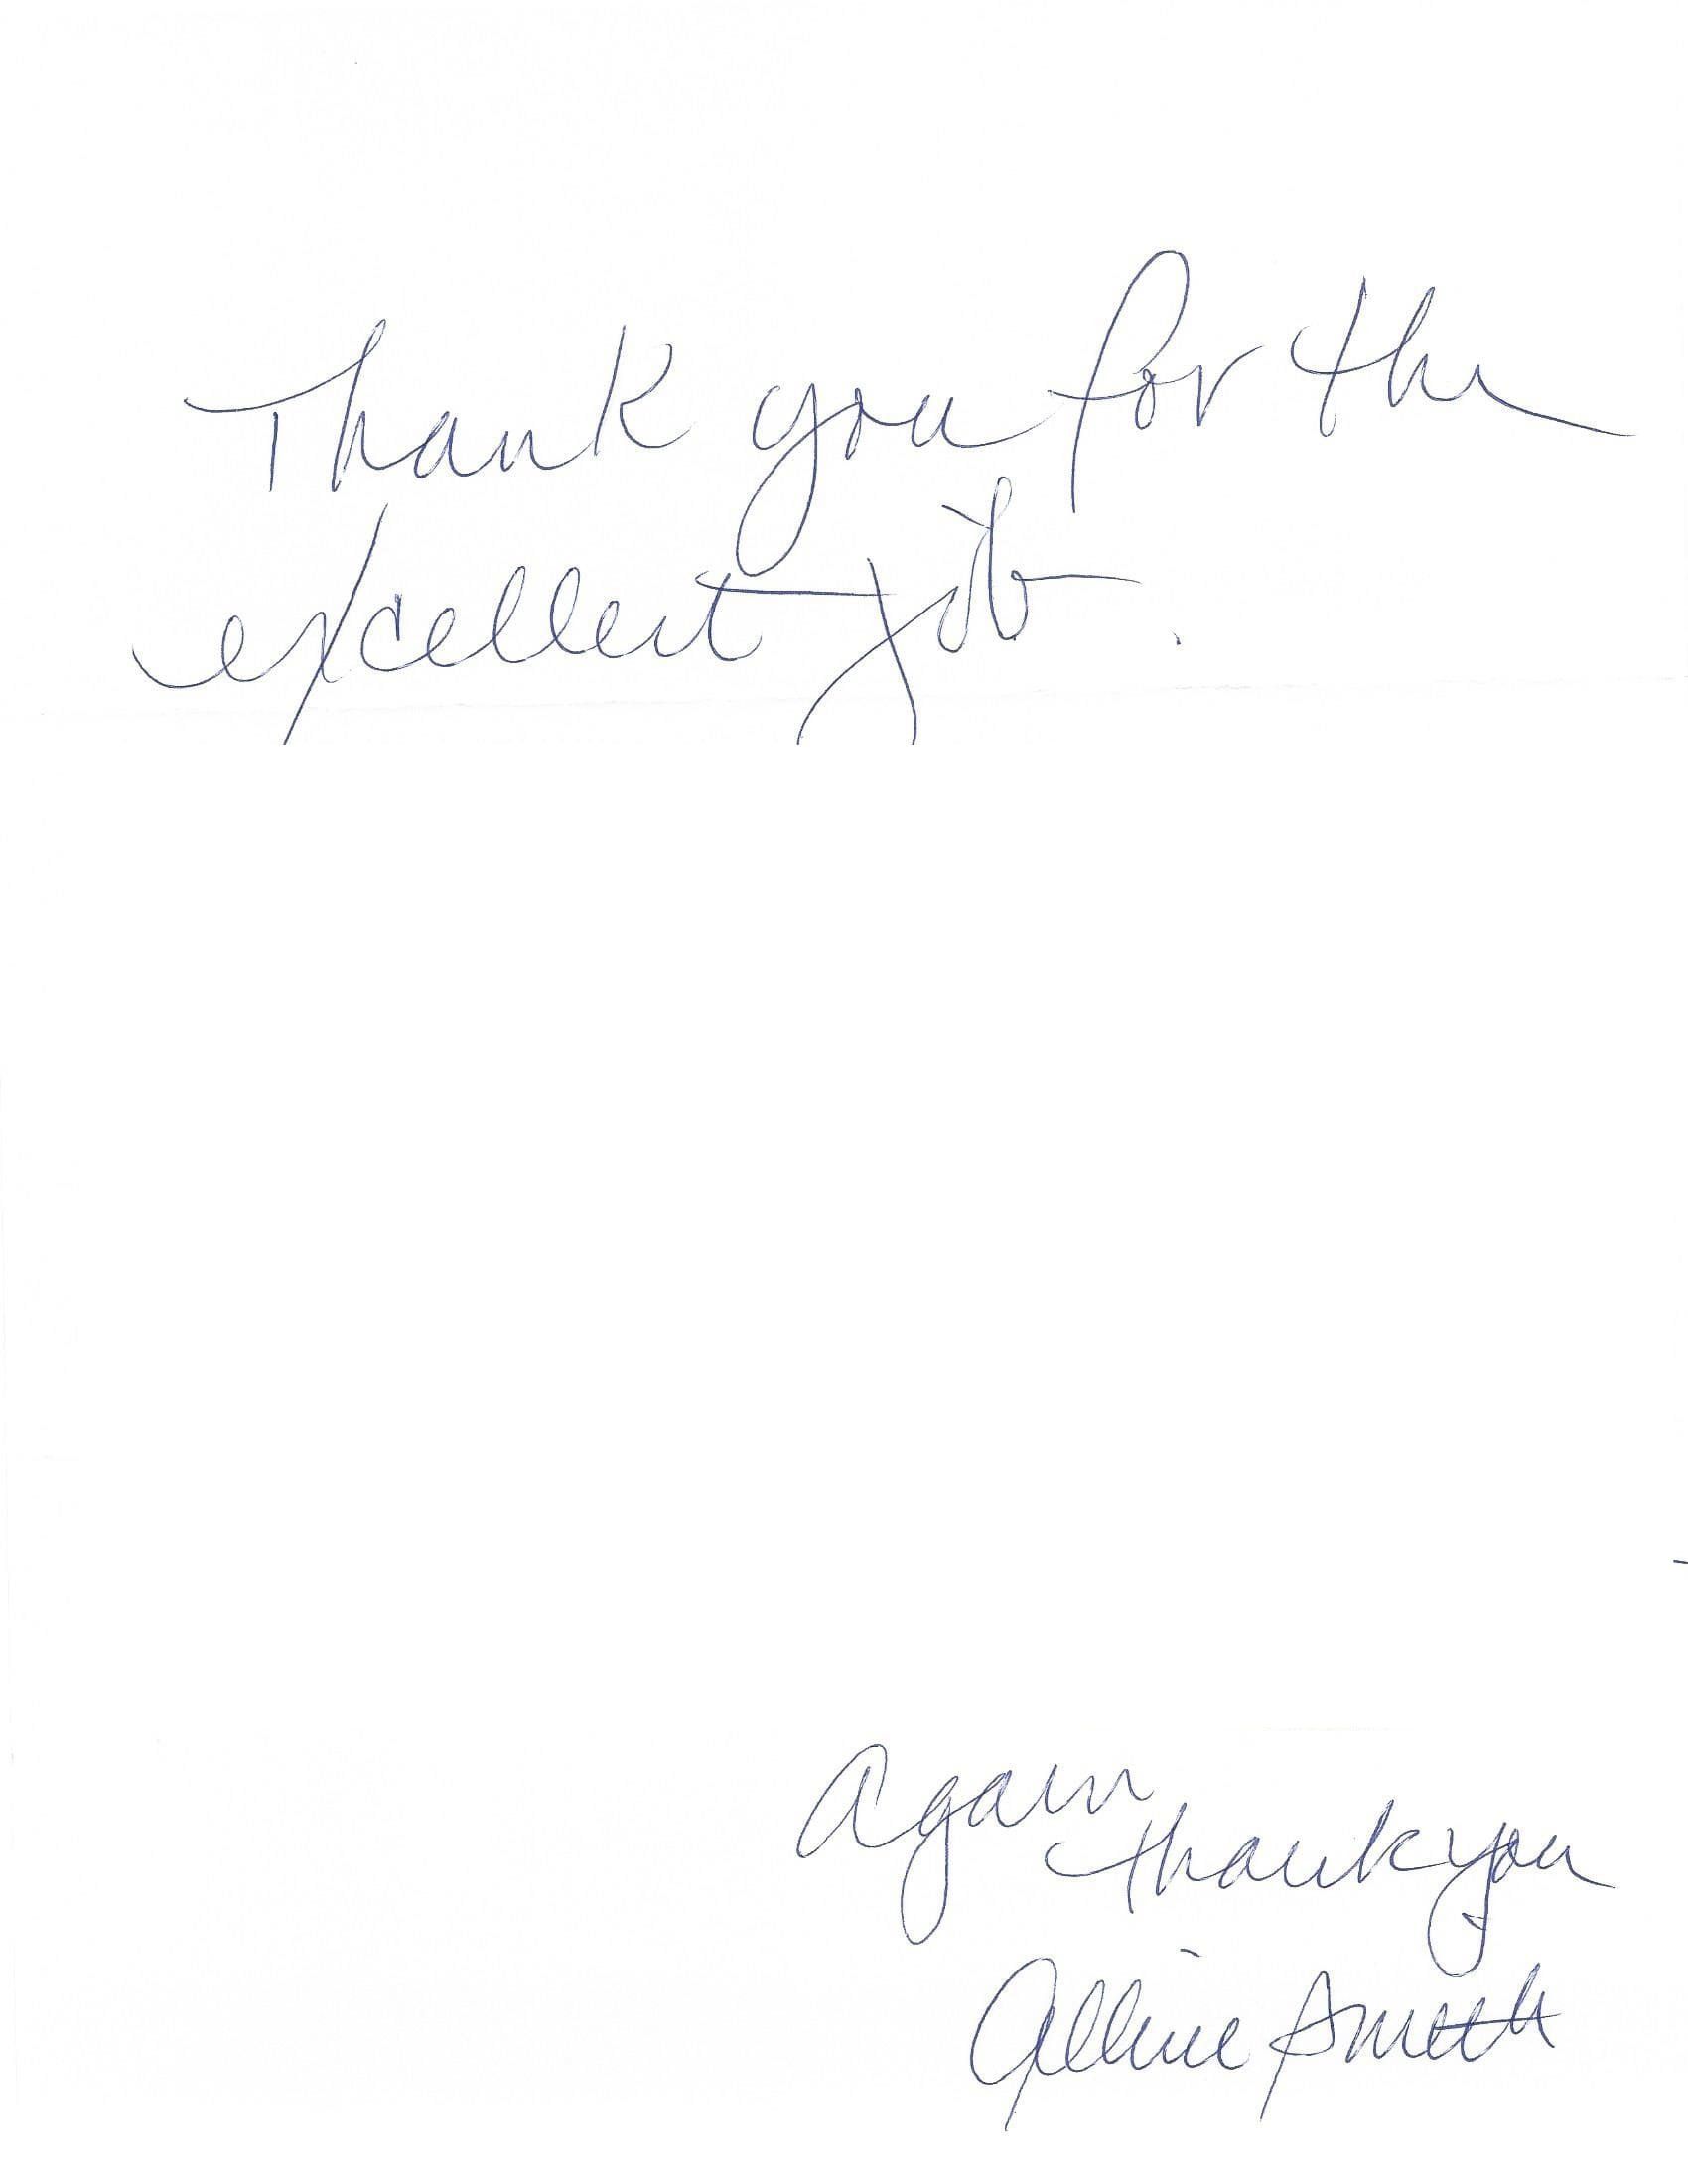 Thank you for the
excellent job.
Again
thank you
Smith